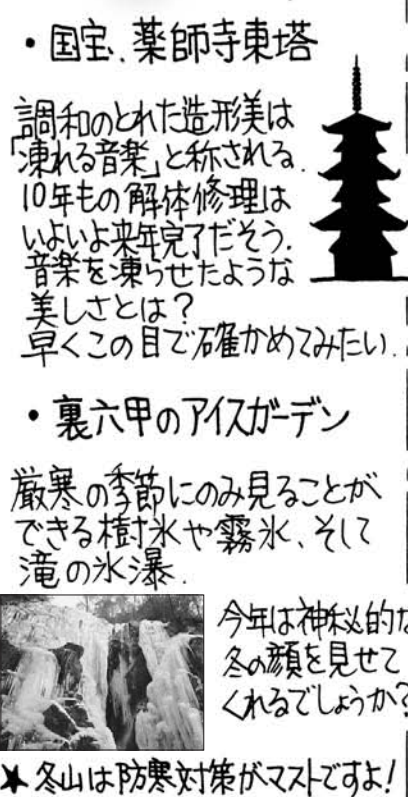 ・国宝、薬師寺東塔
調和のとれた造形美は
「凍れる音楽」と称される.
10年もの解体修理は
いよいよ来年完了だそう.
音楽を凍らせたような
美しさとは?
早くこの目で確かめてみたい.
・裏六甲のアイスガーデン
厳寒の季節にのみ見ることが
できる樹氷や霧氷、そして
滝の氷瀑.
今年は神秘的な
冬の顔を見せて
くれるでしょうか?
★冬山は防寒対策がマストですよ!